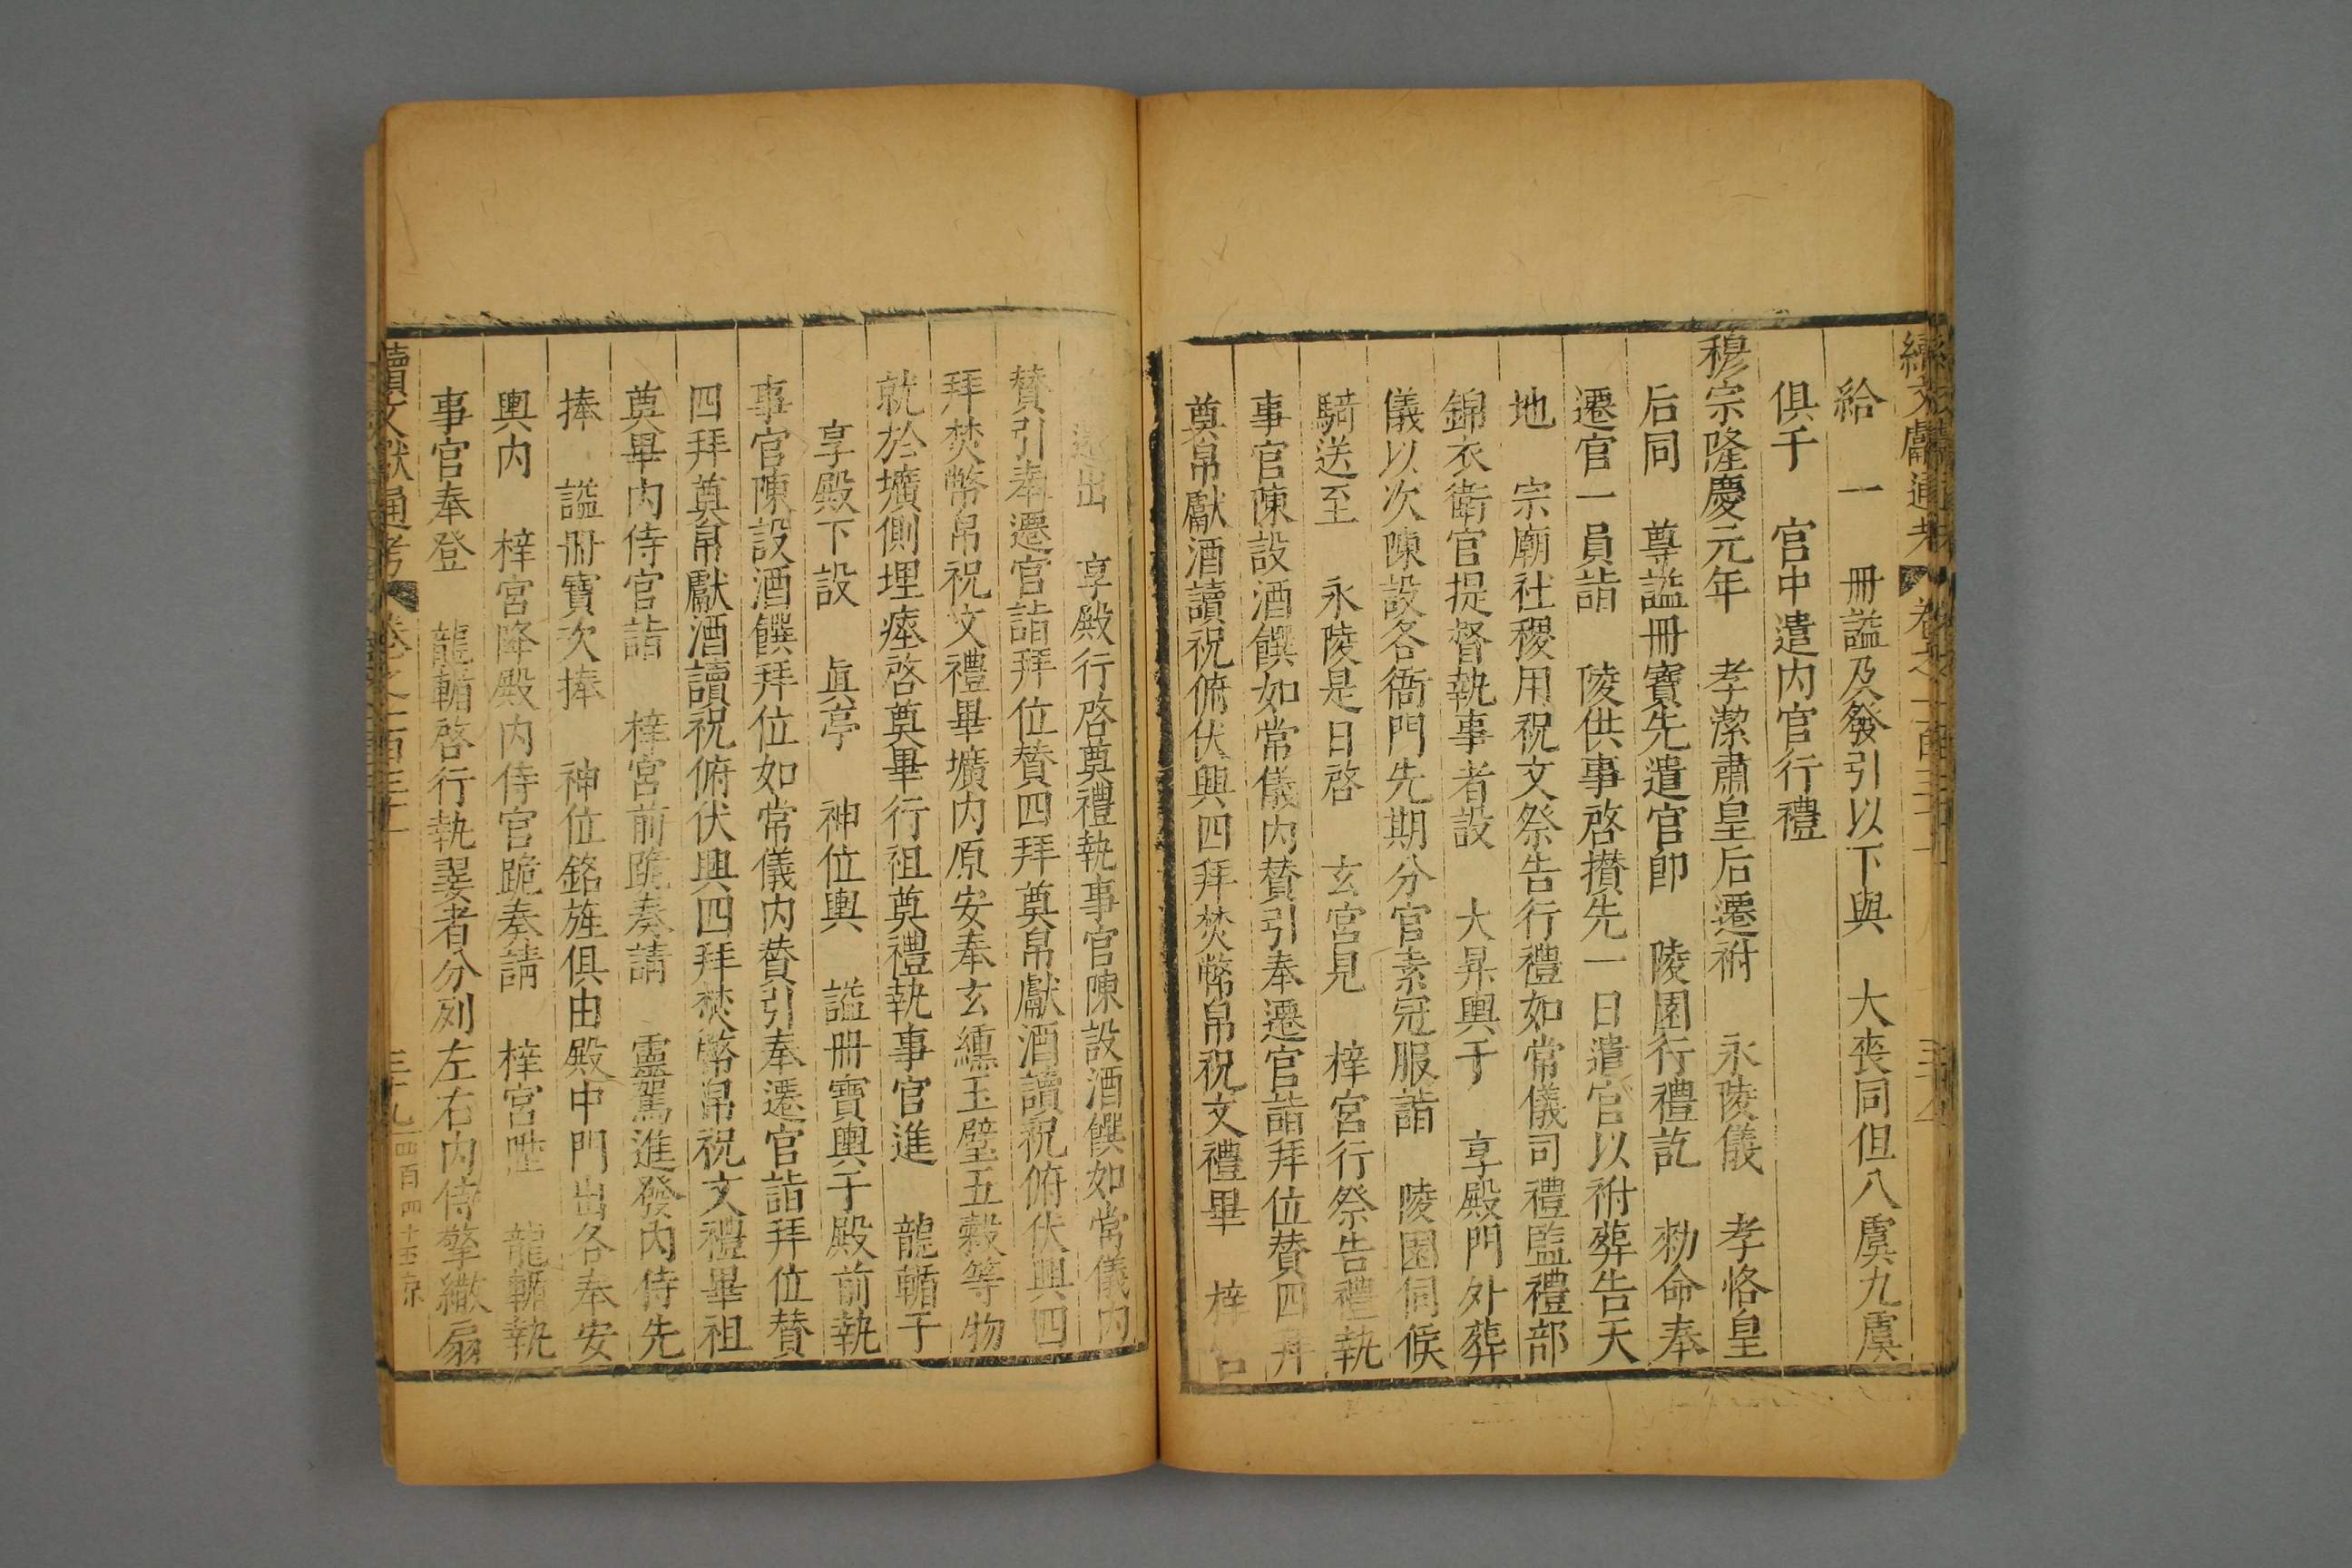 續文獻通考 卷之一百三十
給 一 冊謚及發引以下與 大喪同但八虞九虞
俱于 宮中遣內官行禮
穆宗隆慶元年 孝潔肅皇后遷祔 永陵儀 孝恪皇
后同 尊謚冊寶先遣官卽 陵園行禮訖 勑命奉
遷官一員詣 陵供事啓攢先一日遣官以祔葬告天
地 宗廟社稷用祝文祭告行禮如常儀司禮監禮部
錦衣衛官提督執事者設 大昇輿于 享殿門外葬
儀以次陳設各衙門先期分官素冠服詣 陵園伺候
騎送至 永陵是日啓 玄宮見 梓宮行祭告禮執
事官陳設酒饌如常儀內贊引奉遷官詣拜位贊四拜
奠帛獻酒讀祝俯伏興四拜焚幣帛祝文禮畢 梓宮
出 享殿行啓奠禮執事官陳設酒饌如常儀內
贊引奉遷官詣拜位贊四拜奠帛獻酒讀祝俯伏興四
拜焚幣帛祝文禮畢壙內原安奉玄纁玉璧五穀等物
就於壙側埋瘞啓奠畢行祖奠禮執事官進 龍輴于
享殿下設 眞亭 神位輿 謚冊寶輿于殿前執
事官陳設酒饌拜位如常儀內贊引奉遷官詣拜位贊
四拜奠帛獻酒讀祝俯伏興四拜焚幣帛祝文禮畢祖
奠畢內侍官詣 梓宮前跪奏請 靈駕進發內侍先
捧 謚冊寶次捧 神位銘旌俱由殿中門出各奉安
輿內 梓宮降殿內侍官跪奏請 梓宮陞 龍輴執
事官奉登 龍輴啓行執翣者分列左右內侍擎繖扇
續文獻通考 卷之一百三十 三十九 四百四十五 京